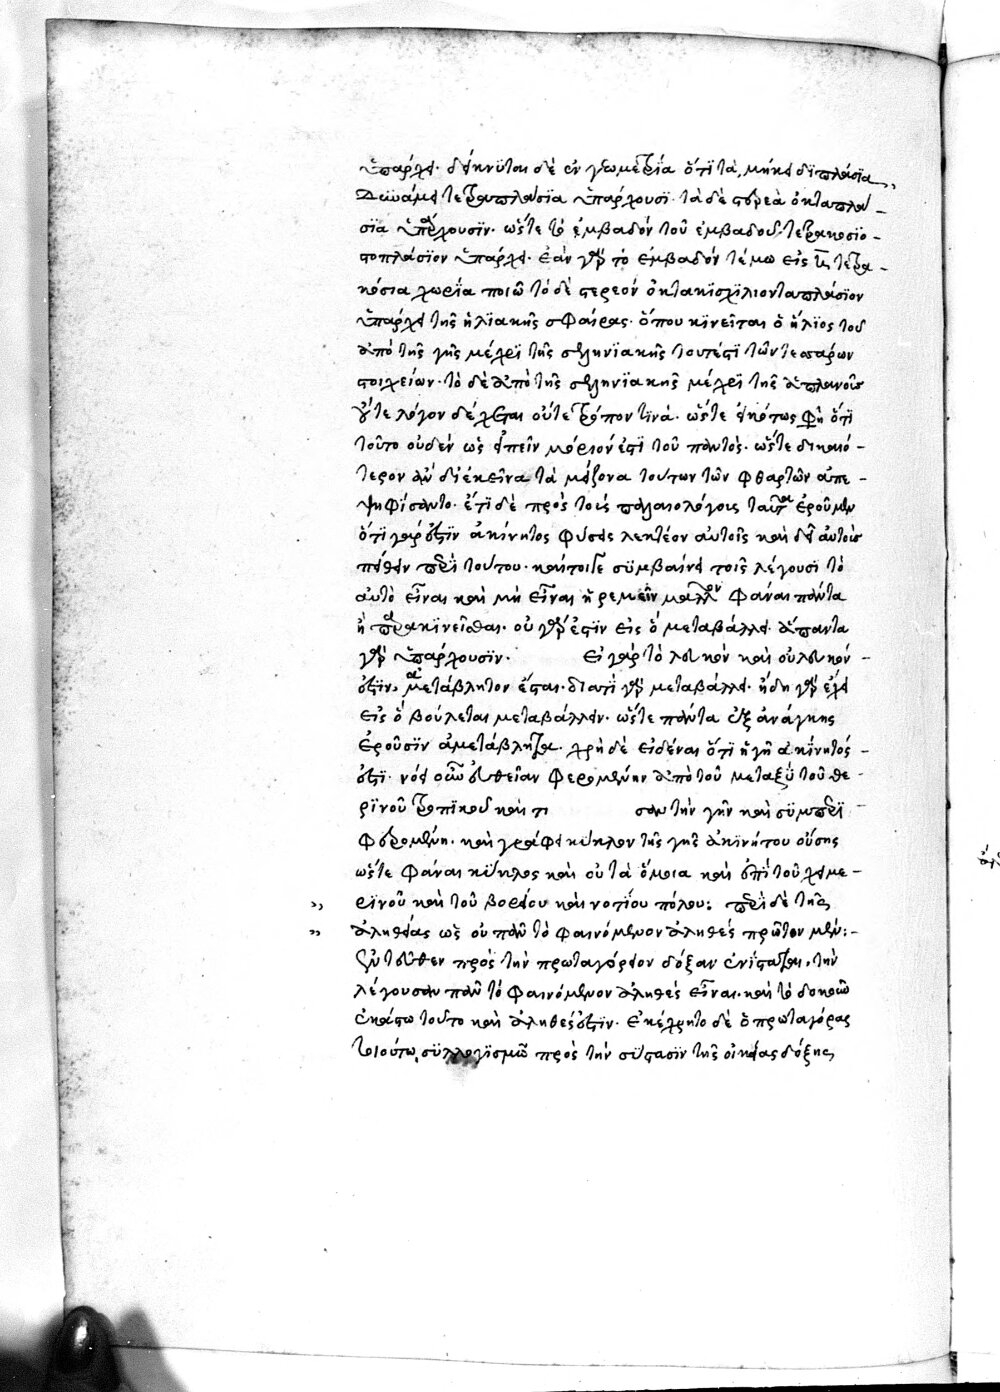 ὑπάρχει. δείκνυται δὲ ἐν γεωμετρία ὅτι τὰ μήκει διπλάσια
δυνάμει τετραπλάσια ὑπάρχουσι. τὰ δὲ στερεὰ ὀκταπλά-
σια ὑπάρχουσιν. ὥστε τὸ ἐμβαδὸν τοῦ ἐμβαδοῦ τετρακοσιο-
στοπλάσιον ὑπάρχει. ἐὰν γὰρ τὸ ἐμβαδὸν τέμω εἰς τετρα-
κόσια χωρία ποιῶ τὸ δὲ στερεὸν ὀκτακισχιλιονταπλάσιον
ὑπάρχει τῆς ἡλιακῆς σφαίρας. ὅπου κινεῖται ὁ ἥλιος τοῦ
ἀπὸ τῆς γῆς μέχρι τῆς σεληνιακῆς τουτέστι τῶν τεσσάρων
στοιχείων. τὸ δὲ ἀπὸ τῆς σεληνιακῆς μέχρι τῆς ἀπλανοῦς
οὔτε λόγον δέχεται οὔτε τρόπον τινά. ὥστε εἰκότως φὴ ὅτι
τοῦτο οὐδὲν ὡς εἰπεῖν μόριον ἐστὶ τοῦ παντὸς. ὥστε δικαιό-
τερον ἂν δι' ἐκεῖνα τὰ μείζονα τούτων τῶν φθαρτῶν ἀπε-
ψηφίσαντο. ἔτι δὲ πρὸς τοὺς παλαιολόγους ταῦτα ἐροῦμεν
ὅτι γάρ ἐστιν ἀκίνητος φύσις λεκτέον αὐτοῖς καὶ δεῖ αὐτοὺς
πείθειν περὶ τούτου. καίτοιγε συμβαίνει τοῖς λέγουσι τὸ
αὐτὸ εἶναι καὶ μὴ εἶναι ἠρεμεῖν μᾶλλον φάναι πάντα
ἢ παρακινεῖσθαι. οὐ γὰρ ἐστὶν εἰς ὃ μεταβάλλει. ἅπαντα
γὰρ ὑπάρχουσιν. εἰ γὰρ τὸ λευκὸν καὶ οὐ λευκόν
ἐστιν, ἀμετάβλητον ἔσται. διατί γὰρ μεταβάλλει. ἤδη γὰρ ἔχει
εἰς ὃ βούλεται μεταβάλλειν. ὥστε πάντα ἐξ ἀνάγκης
ἐροῦσιν ἀμετάβλητα. χρὴ δὲ εἰδέναι ὅτι ἡ γῆ ἀκίνητός
ἐστι. νόει οὖν εὐθεῖαν φερομένην ἀπὸ τοῦ μεταξὺ τοῦ θε-
ρινοῦ τροπικοῦ καὶ τι σαν τὴν γῆν καὶ συμπερι
φερομένη. καὶ γράφει κύκλον τῆς γῆς ἀκινήτου οὔσης
ὥστε φάναι κύκλος καὶ οὐ τὰ ὅμοια καὶ ἐπὶ τοῦ χειμε-
ρινοῦ καὶ τοῦ βορείου καὶ νοτίου πόλου: περὶ δὲ τῆς
ἀληθείας ὡς οὐ πᾶν τὸ φαινόμενον ἀληθές πρῶτον μέν:
ἐντεῦθεν πρὸς τὴν πρωταγόρειον δόξαν ἐνίσταται, τὴν
λέγουσαν πᾶν τὸ φαινόμενον ἀληθὲς εἶναι. καὶ τὸ δοκοῦν
ἑκάστω τοῦτο καὶ ἀληθές ἐστιν. ἐκέχρητο δὲ ὁ πρωταγόρας
τοιούτω συλλογισμῶ πρὸς τὴν σύστασιν τῆς οἰκείας δόξης